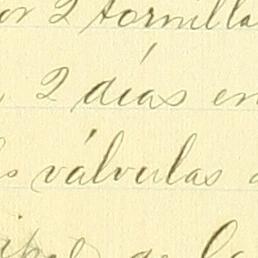 or 2 tornilla
2 días en
s válvulas
de la